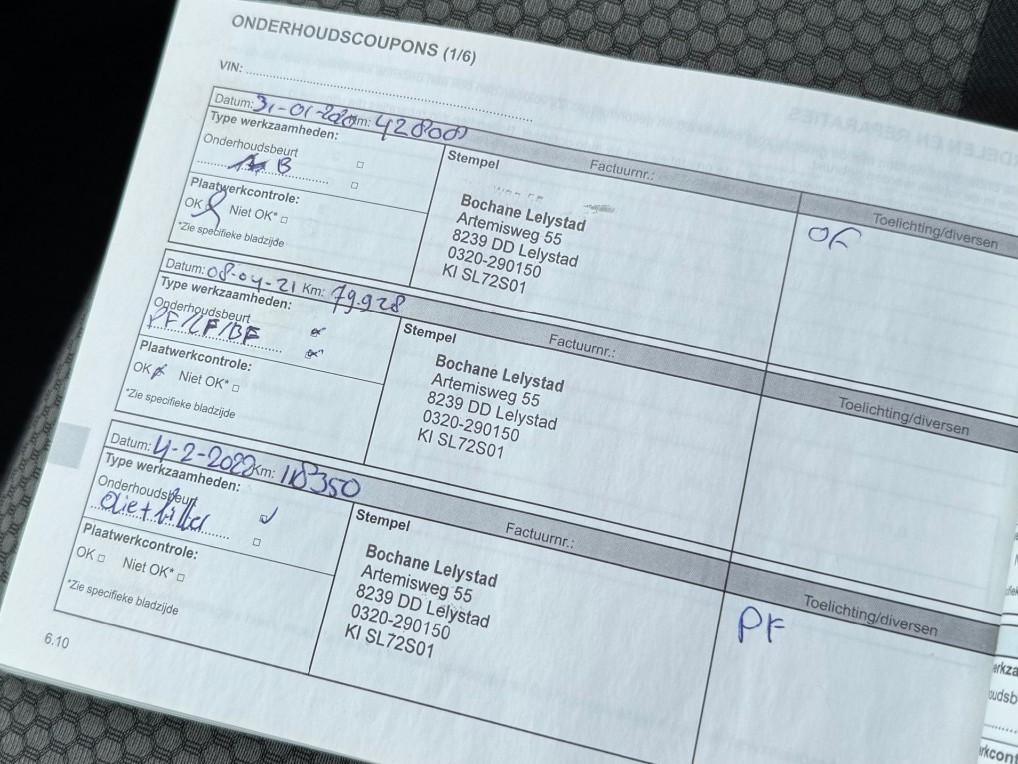 ONDERHOUDSCOUPONS (1/6)
VIN:
Datum: 31-01-2020 Km: 42800
Type werkzaamheden:
Onderhoudsbeurt
B
Plaatwerkcontrole:
OK Niet OK*
*Zie specifieke bladzijde
Stempel Factuurnr.:
Bochane Lelystad
Artemisweg 55
8239 DD Lelystad
0320-290150
KI SL72S01
Toelichting/diversen
OF
Datum: 08-04-21 Km: 79.928
Type werkzaamheden:
Onderhoudsbeurt
PF/LF/BF
Plaatwerkcontrole:
OK Niet OK*
*Zie specifieke bladzijde
Stempel Factuurnr.:
Bochane Lelystad
Artemisweg 55
8239 DD Lelystad
0320-290150
KI SL72S01
Toelichting/diversen
Datum: 4-2-2022 Km: 118350
Type werkzaamheden:
Onderhoudsbeurt
Olie + filter
Plaatwerkcontrole:
OK Niet OK*
*Zie specifieke bladzijde
Stempel Factuurnr.:
Bochane Lelystad
Artemisweg 55
8239 DD Lelystad
0320-290150
KI SL72S01
Toelichting/diversen
PF
6.10